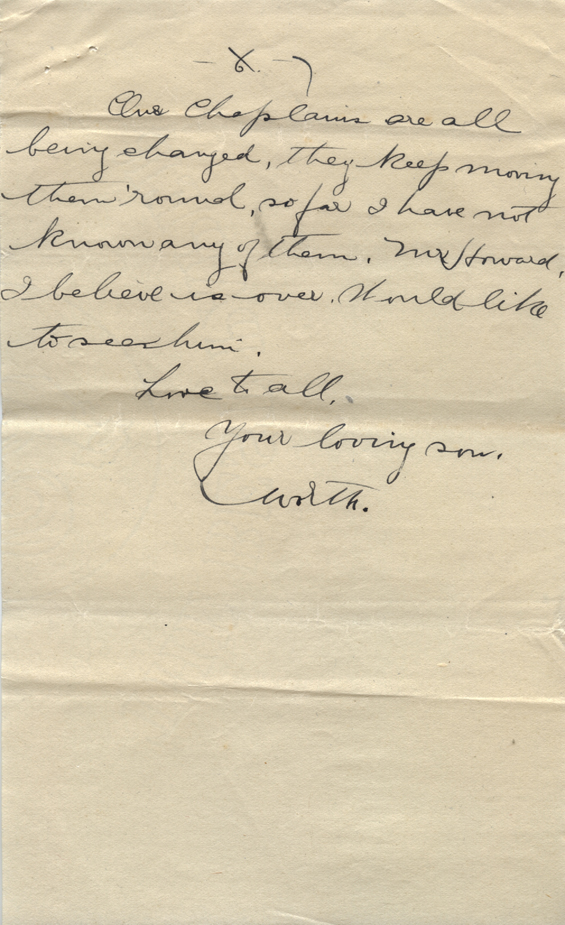 Our Chaplains are all
being changed, they keep moving
them 'round, so far I have not
known any of them. Mr Howard,
I believe is over. Would like
to see him.
Love to all,
Your loving son,
Worth.